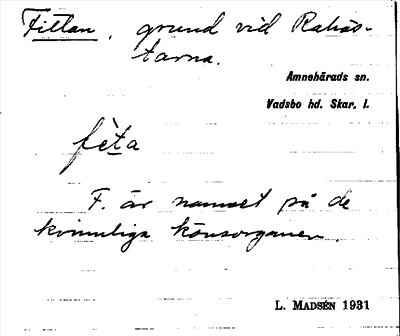 Fittan, grund vid Rahäs-
tarna.
Amnehärads sn.
Vadsbo hd. Skar. l.
fèta
F. är namnet på de
kvinnliga könsorganen.
L. MADSÉN 1931